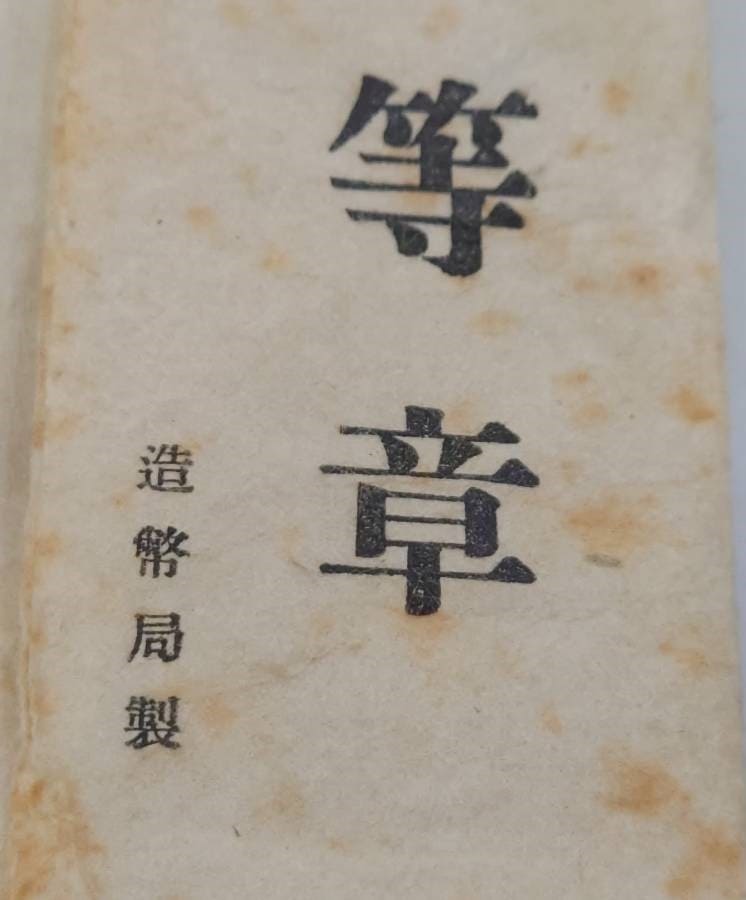 等章
造幣局製